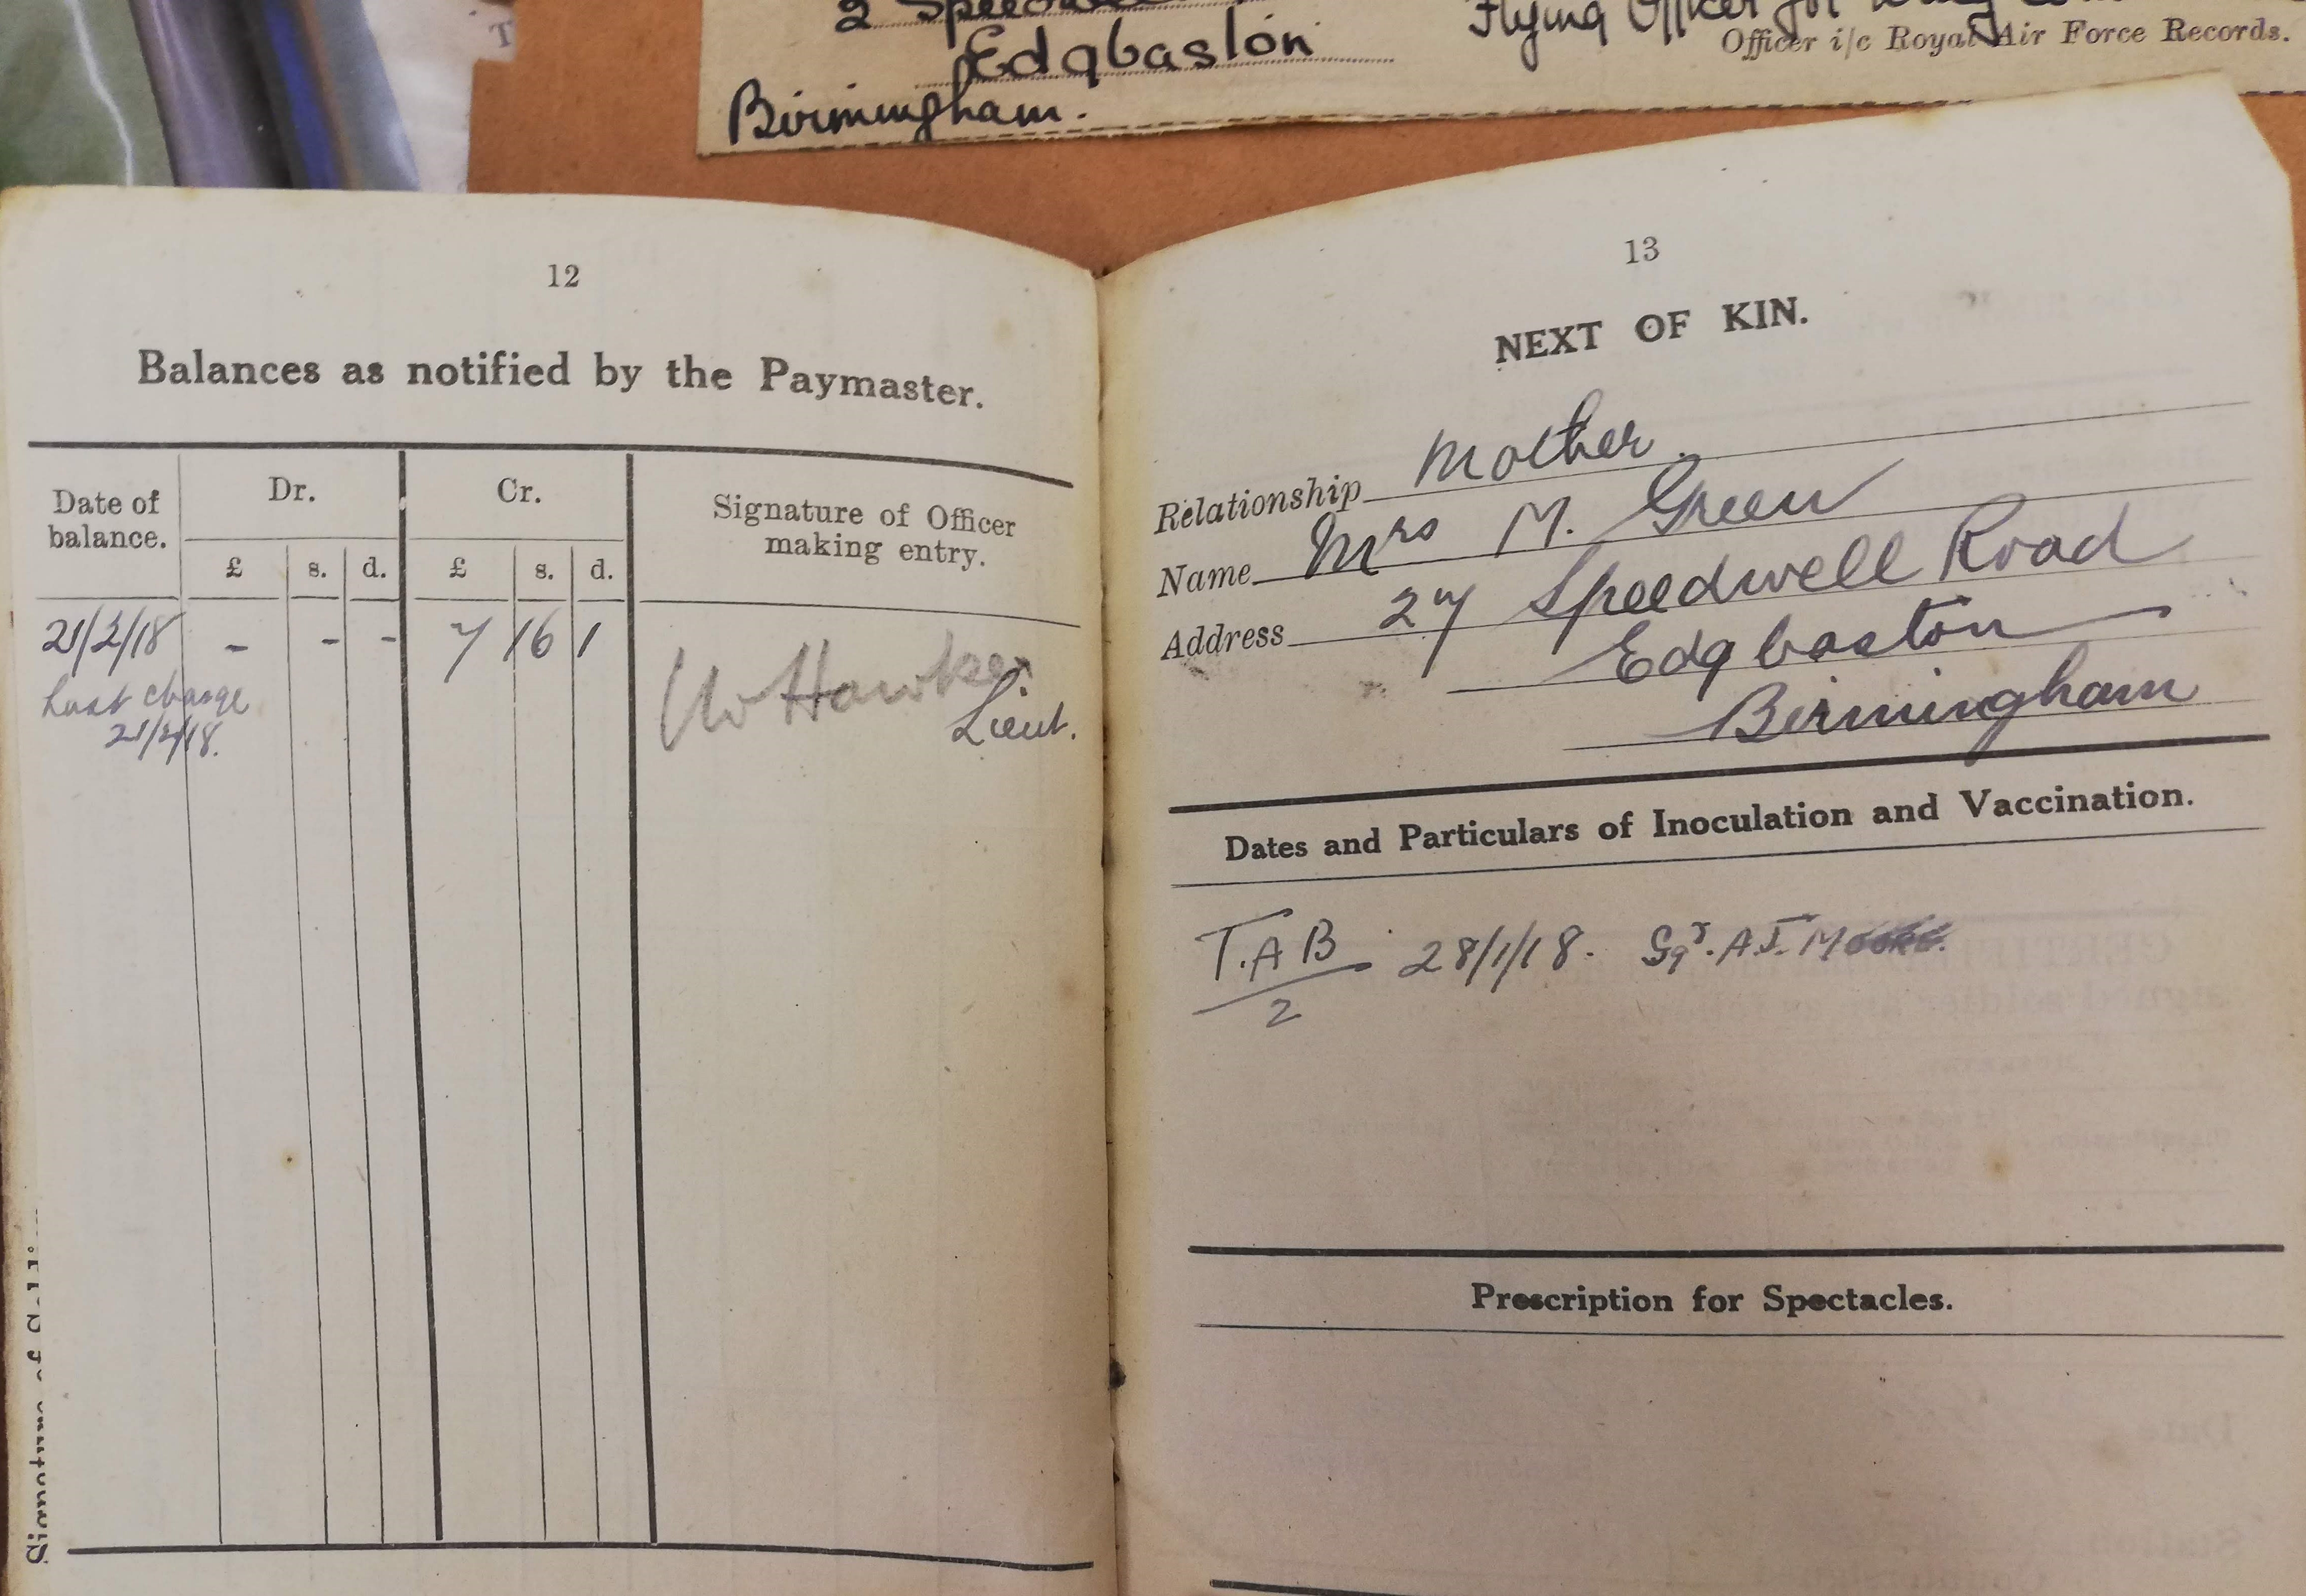 2 Speedwell
Edgbaston
Birmingham.
Flying Officer for
Officer i/c Royal Air Force Records.
T
12
Balances as notified by the Paymaster.
Date of balance. Dr. Cr. Signature of Officer making entry.
£ s. d. £ s. d.
21/2/18 - - - 7 16 1
Last charge
21/2/18.
Hawkes
Lieut.
Signature of
13
NEXT OF KIN.
Relationship Mother.
Name Mrs M. Green
Address 27 Speedwell Road
Edgbaston
Birmingham
Dates and Particulars of Inoculation and Vaccination.
T.A B 28/1/18. Sgt. A.J. Moore.
2
Prescription for Spectacles.